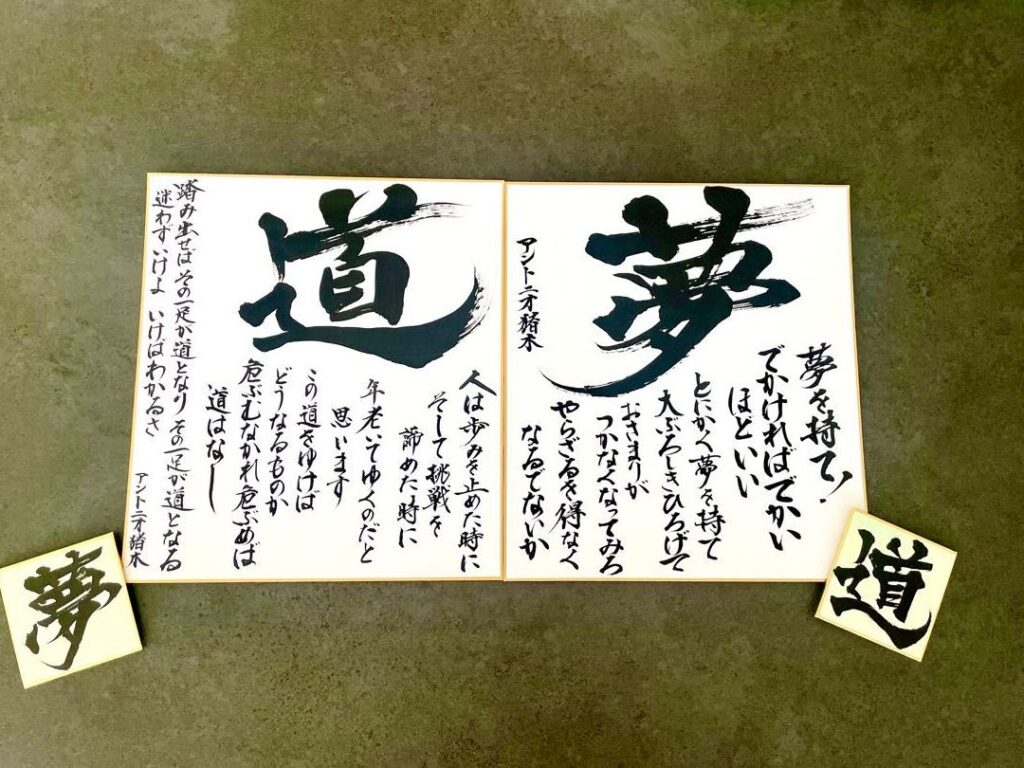 夢
夢を持て！
でかければでかい
ほどいい
とにかく夢を持て
大ぶろしきひろげて
おさまりが
つかなくなってみろ
やらざるを得なく
なるでないか
アントニオ猪木
道
人は歩みを止めた時に
そして挑戦を
諦めた時に
年老いてゆくのだと
思います
この道をゆけば
どうなるものか
危ぶむなかれ危ぶめば
道はなし
踏み出せばその一足が道となりその一足が道となる
迷わずいけよ いけばわかるさ
アントニオ猪木
道
夢